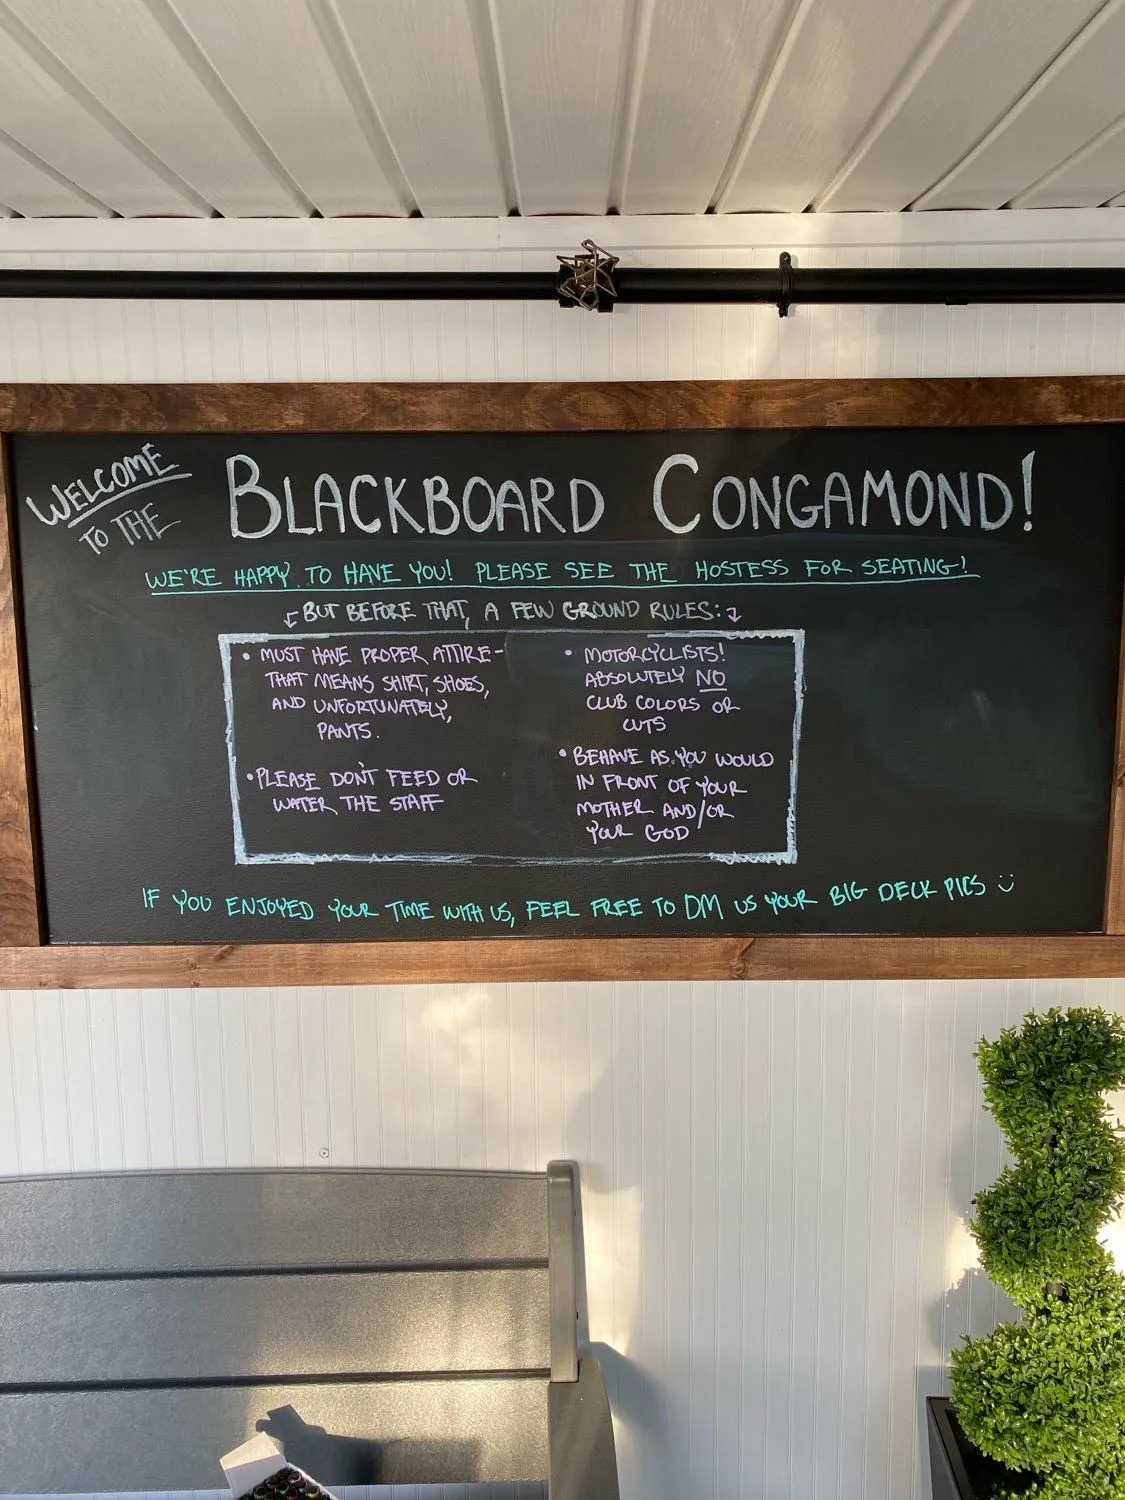 WELCOME
TO THE
BLACKBOARD CONGAMOND!
WE'RE HAPPY TO HAVE YOU! PLEASE SEE THE HOSTESS FOR SEATING!
BUT BEFORE THAT, A FEW GROUND RULES:
• MUST HAVE PROPER ATTIRE-
THAT MEANS SHIRT, SHOES,
AND UNFORTUNATELY,
PANTS.
• PLEASE DON'T FEED OR
WATER THE STAFF
• MOTORCYCLISTS!
ABSOLUTELY NO
CLUB COLORS OR
CUTS
• BEHAVE AS YOU WOULD
IN FRONT OF YOUR
MOTHER AND/OR
YOUR GOD
IF YOU ENJOYED YOUR TIME WITH US, FEEL FREE TO DM US YOUR BIG DECK PICS